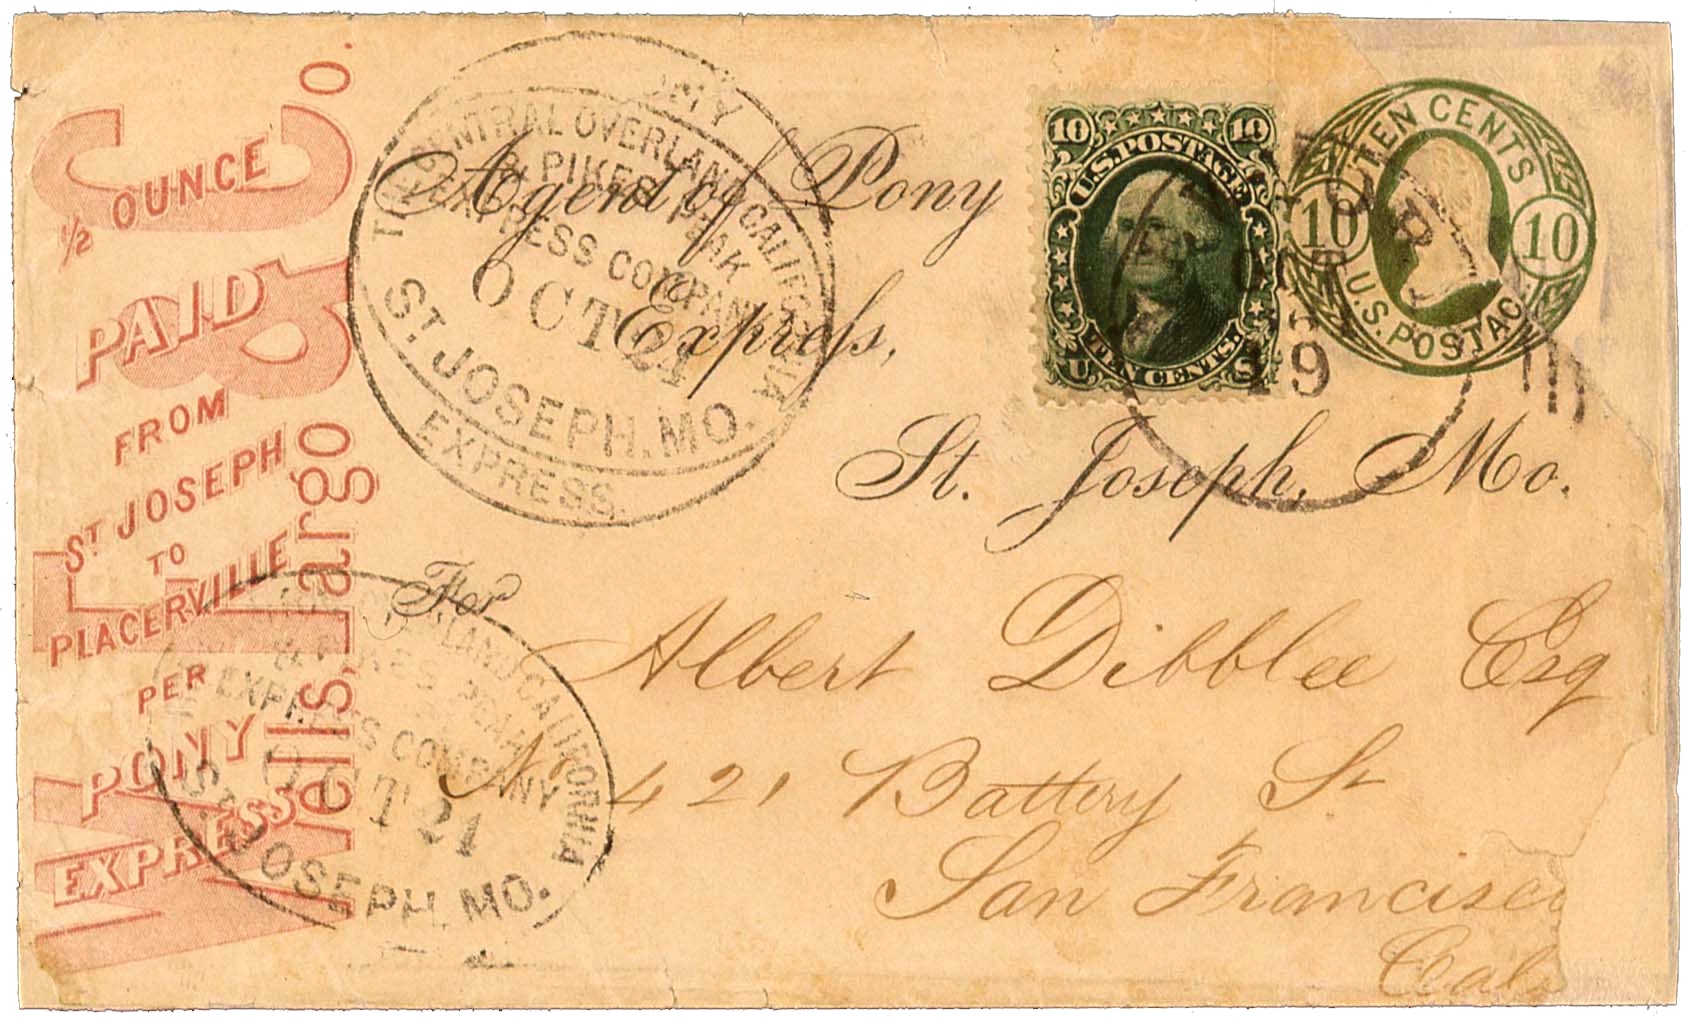 Wells, Fargo & Co.
½ OUNCE
PAID
FROM
ST JOSEPH
TO
PLACERVILLE
PER
PONY
EXPRESS
THE CENTRAL OVERLAND CALIFORNIA
& PIKES PEAK
EXPRESS COMPANY
OCT 21
ST. JOSEPH. MO.
EXPRESS.
Agent of Pony
Express,
St. Joseph, Mo.
10 10
U.S. POSTAGE
TEN CENTS.
U S
TEN CENTS
10 10
U.S. POSTAGE
OCT
19
For
Albert Dibblee Esq
No 421 Battery St
San Francisco
Cal
OVERLAND CALIFORNIA
& PIKES PEAK
EXPRESS COMPANY
OCT 21
ST. JOSEPH. MO.